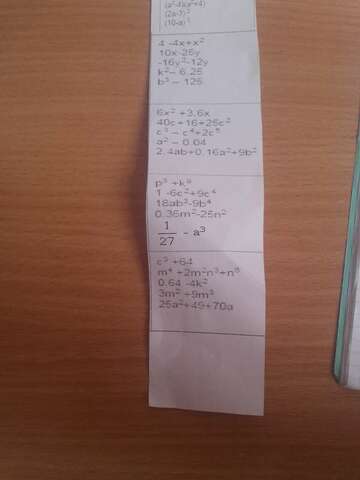 (a²-4)(a²+4)
(2a-3)²
(10-a)³
4 -4x+x²
10x-25y
-16y³-12y
k²– 6.25
b³ – 125
6x² +3.6x
40c+16+25c²
c³ – c⁴+2c⁵
a² – 0.04
2.4ab+0.16a²+9b²
p³ +k⁶
1 -6c²+9c⁴
18ab³-9b⁴
0.36m²-25n²
1/27 - a³
c³ +64
m⁴ +2m²n³+n⁶
0.64 -4k²
3m² +9m³
25a²+49+70a